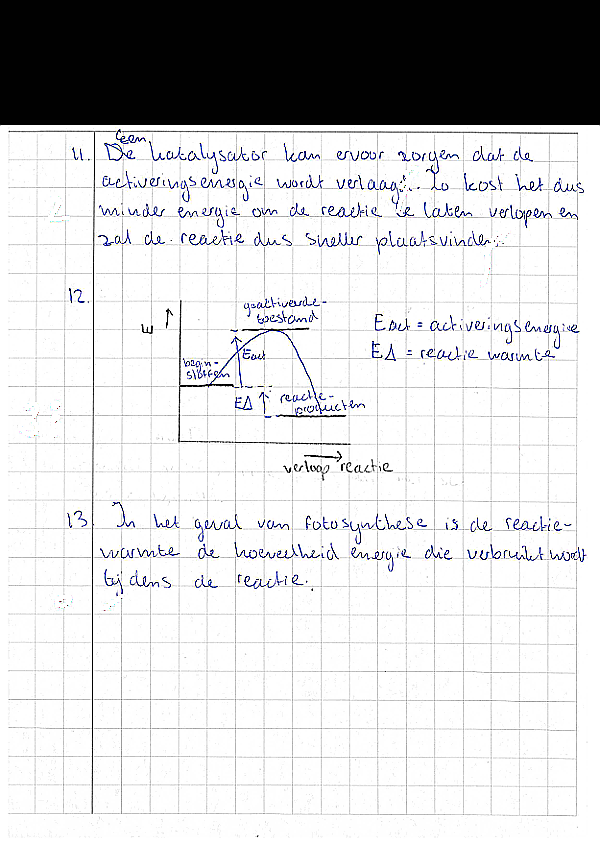 een
11. De katalysator kan ervoor zorgen dat de
activeringsenergie wordt verlaagd. Zo kost het dus
minder energie om de reactie te laten verlopen en
zal de reactie dus sneller plaatsvinden.
12.
geactiveerde-
toestand
E
Eact = activeringsenergie
EΔ = reactie warmte
Eact
begin-
stoffen
EΔ
reactie-
producten
verloop reactie
13. In het geval van fotosynthese is de reactie-
warmte de hoeveelheid energie die verbruikt wordt
tijdens de reactie.